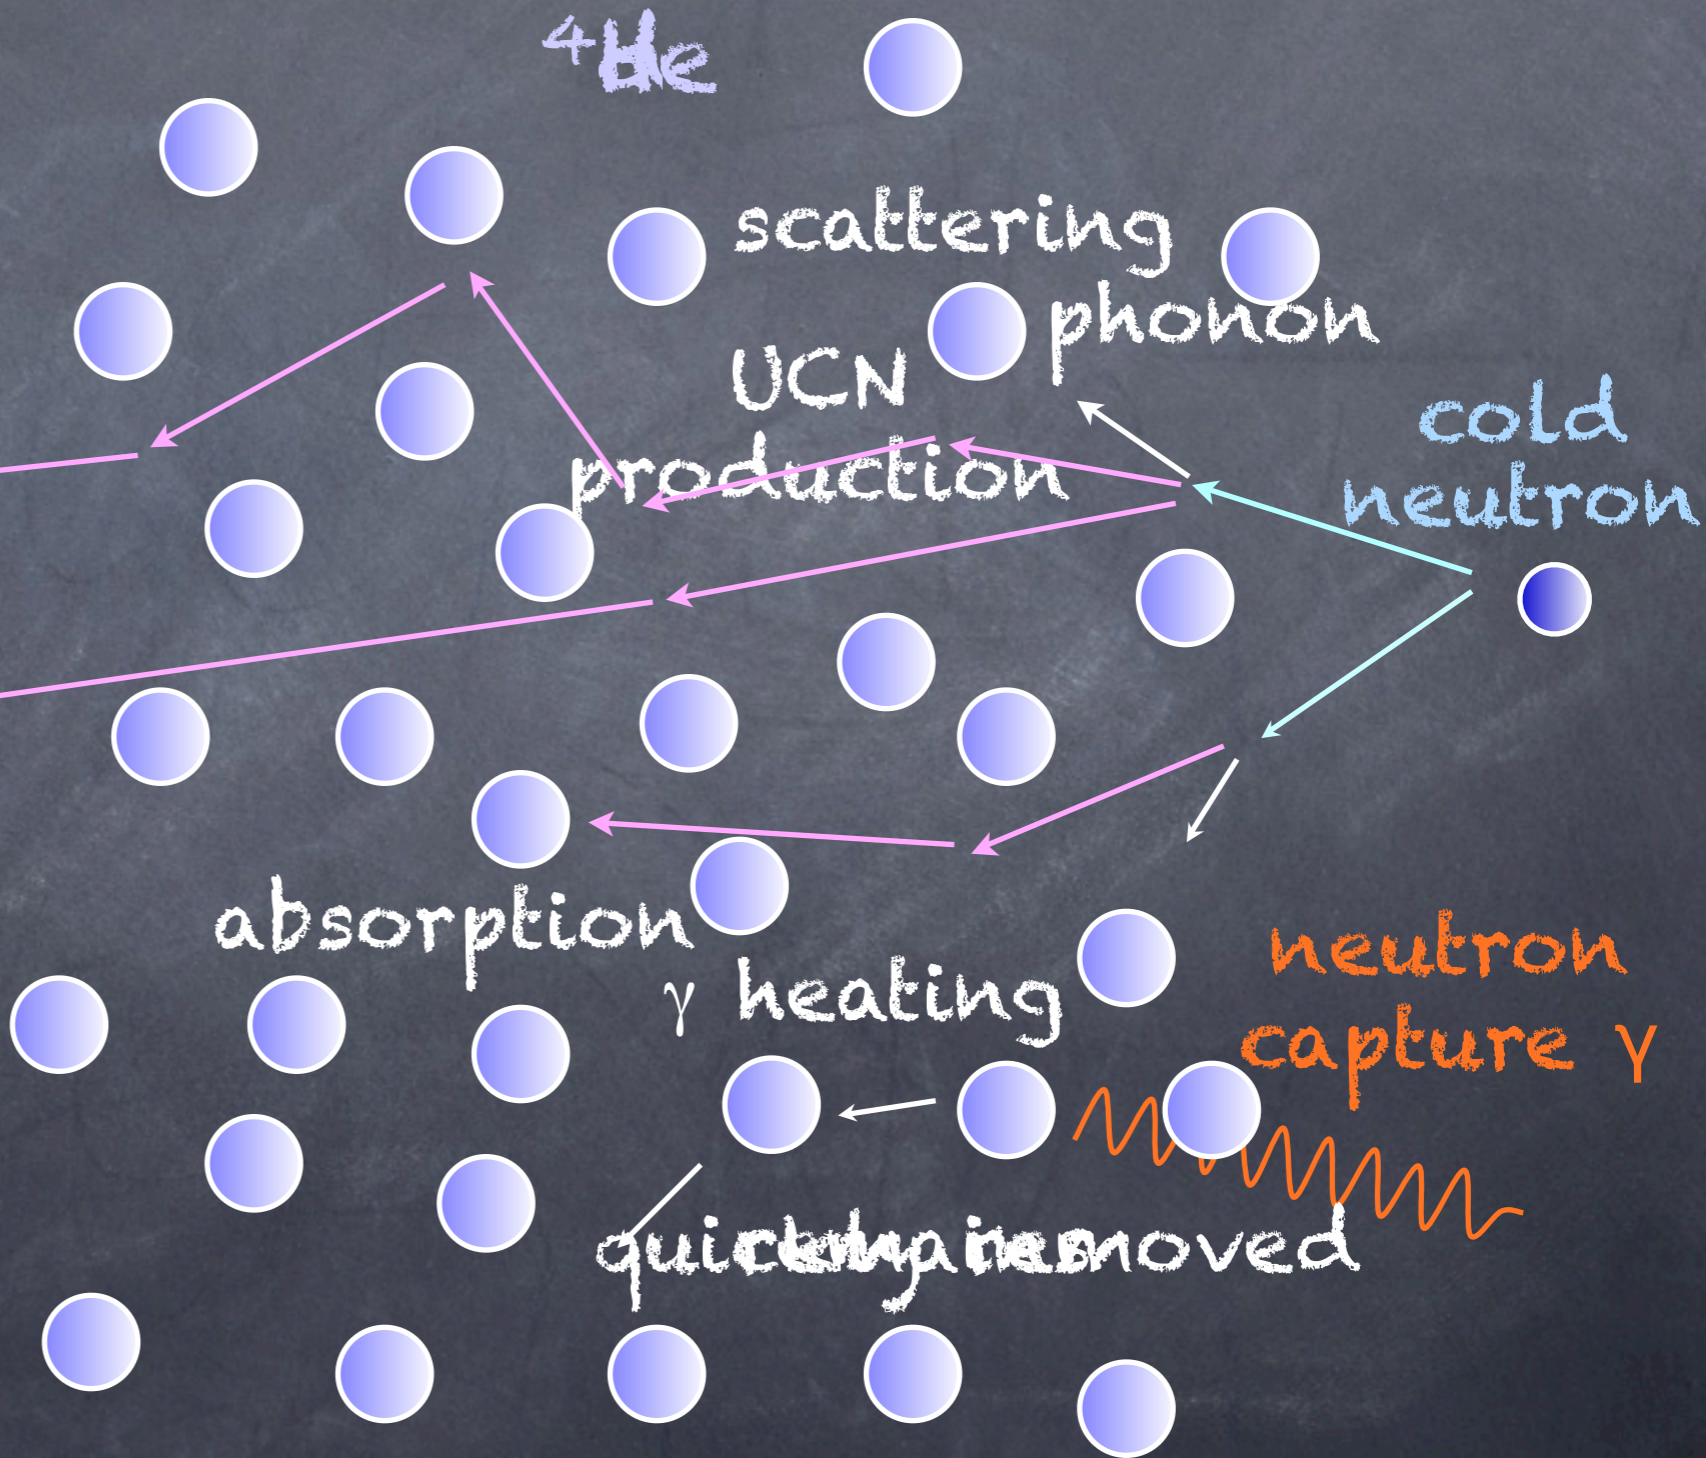 ⁴He
scattering
phonon
UCN
production
cold
neutron
absorption
γ heating
neutron
capture γ
quickly removed
remains